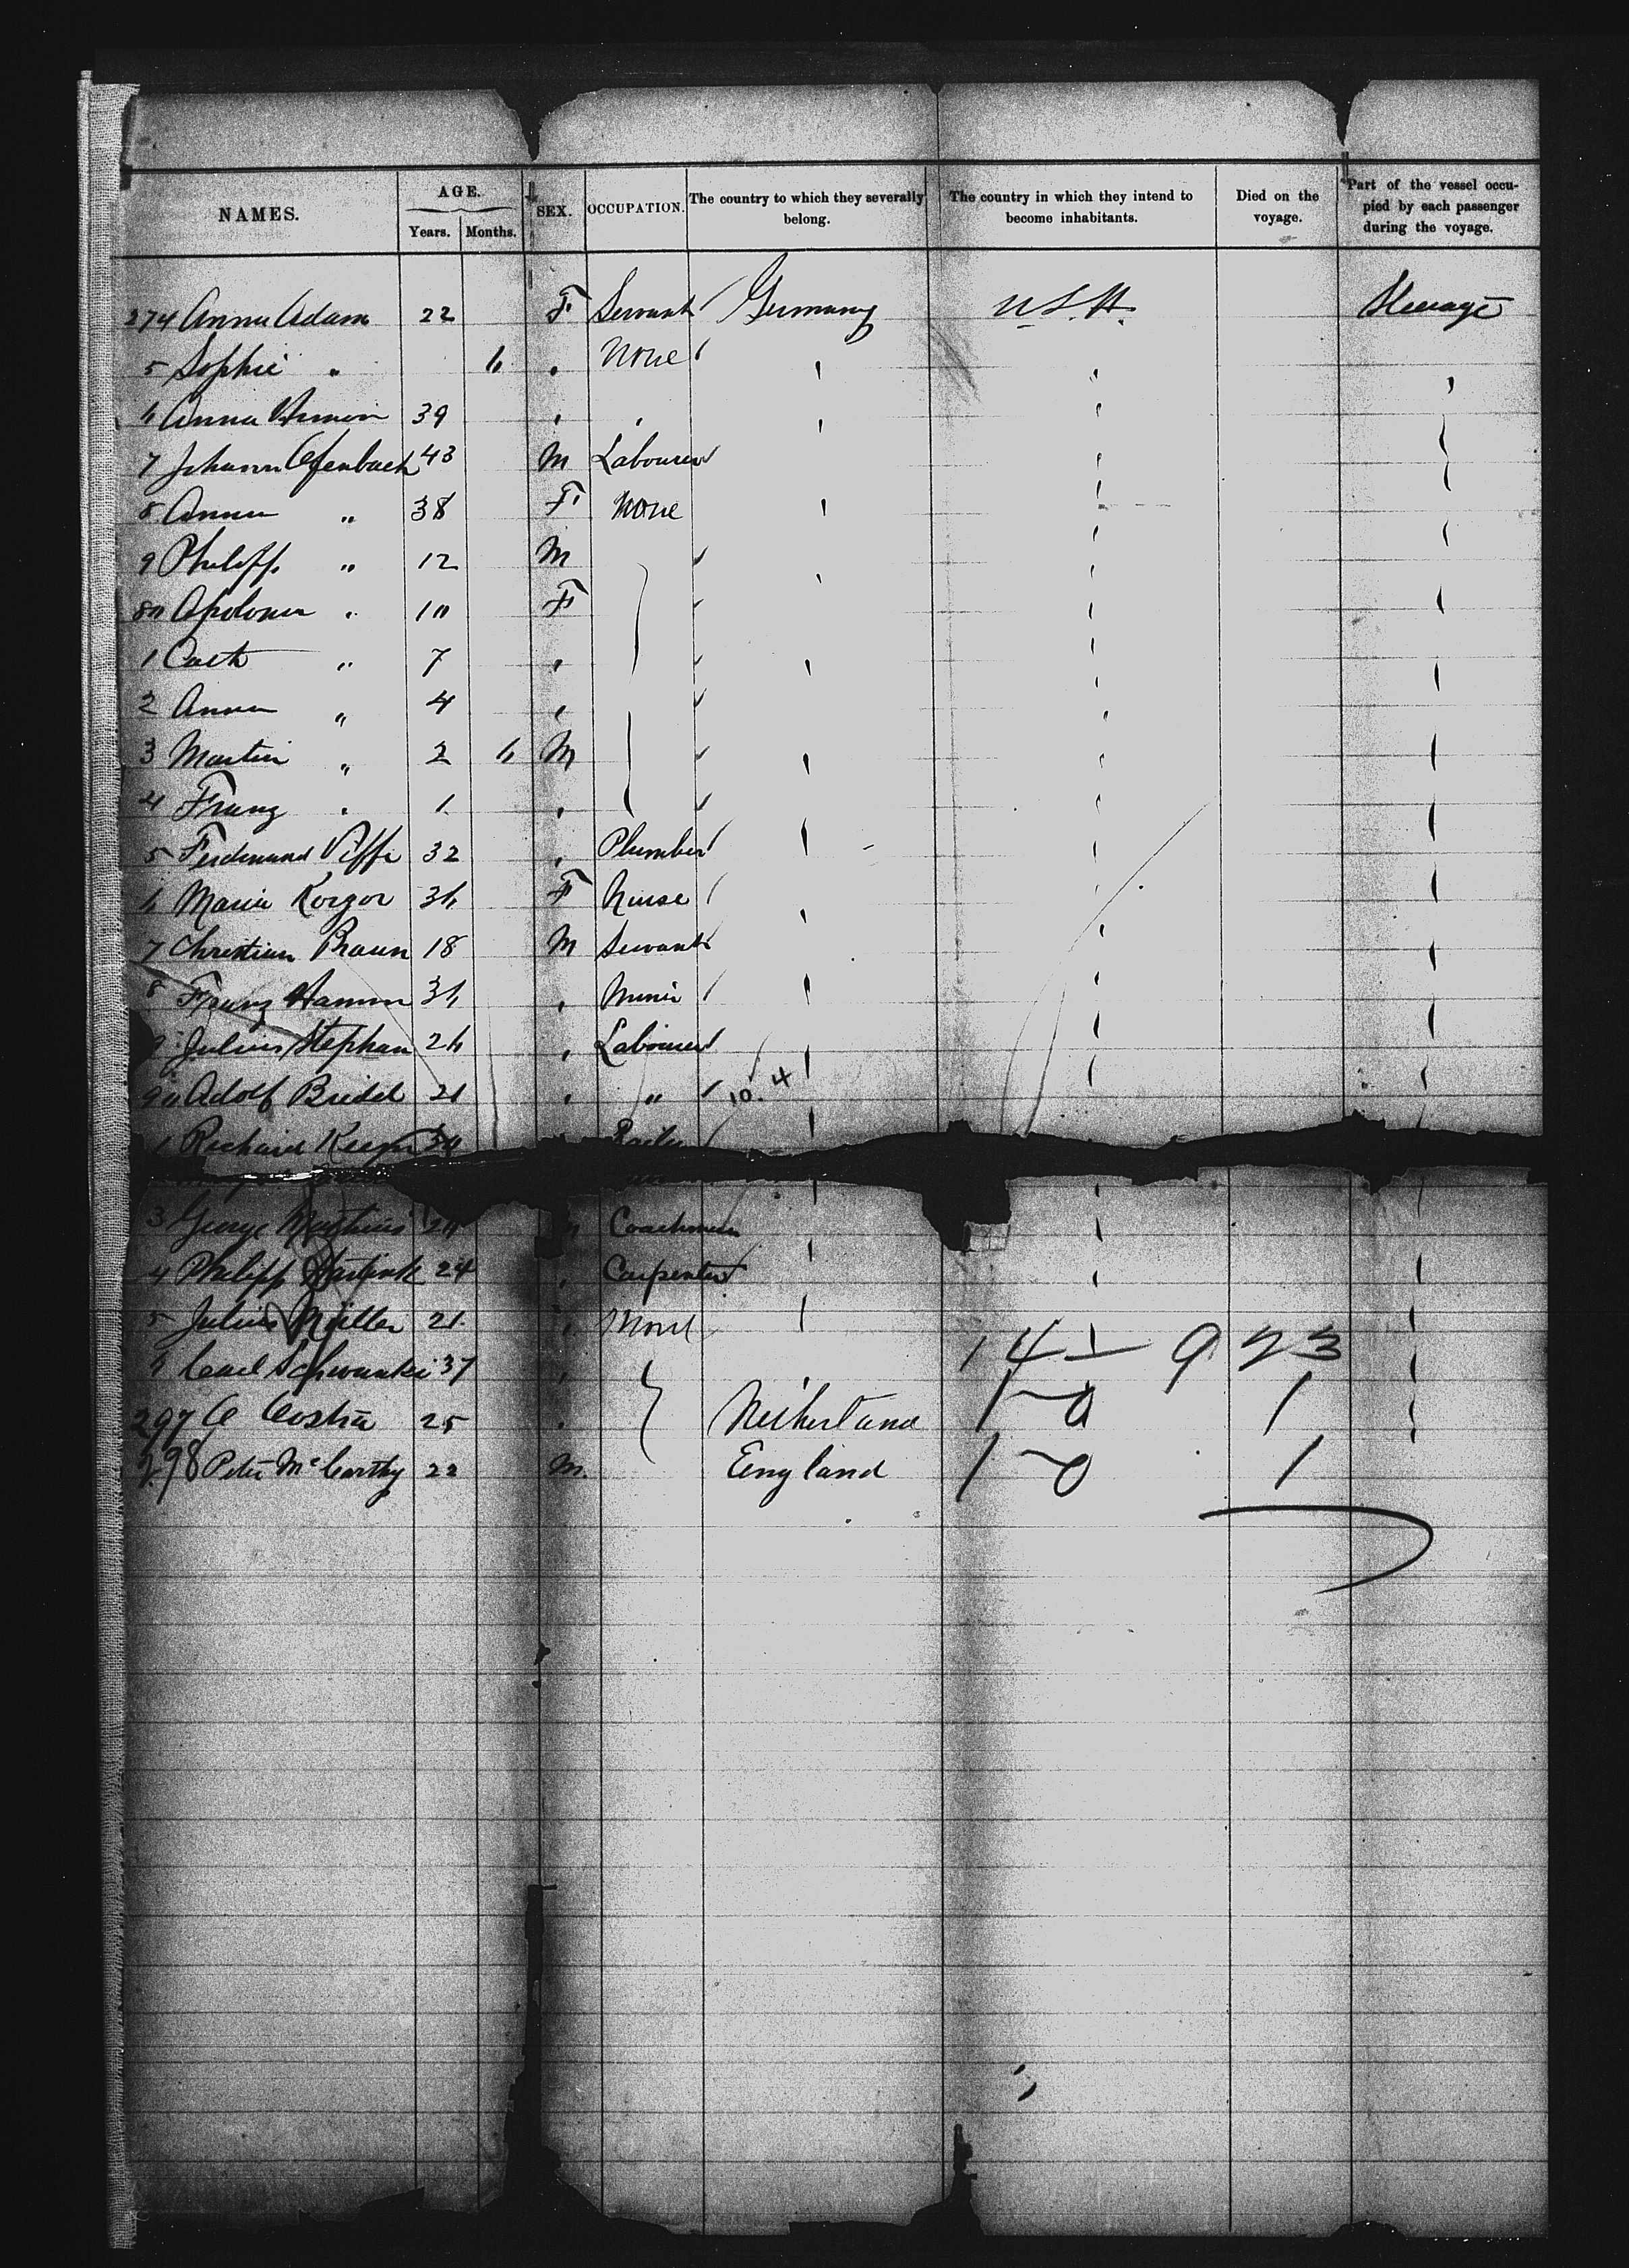 NAMES. AGE. Years. Months. SEX. OCCUPATION. The country to which they severally belong. The country in which they intend to become inhabitants. Died on the voyage. *Part of the vessel occupied by each passenger during the voyage.
274 Anna Adam 22 F Servant Germany U.S.A. Steerage
5 Sophie " 6 " None
6 Anna 39 "
7 Johann Ofenbach 43 M Labourer
8 Anna " 38 F None
9 Philipp " 12 M
80 Apolonia " 10 F
1 Cath " 7 "
2 Anna " 4 "
3 Martin " 2 6 M
4 Franz " 1 "
5 Ferdinand 32 " Plumber
6 Maria Korgor 36 F Nurse
7 Christian Braun 18 M Servant
8 Franz Hamm 36 " Miner
9 Julius Stephan 26 " Labourer
90 Adolf Bridel 21 " " 10. 4
1 Richard
3 George Coachman
4 Philipp 24 " Carpenter
5 Julius Müller 21 " None
6 Carl Schwanke 37 " 14 9 23
297 25 " Netherland 1 0 1
298 Peter McCarthy 22 M. England 1 0 1